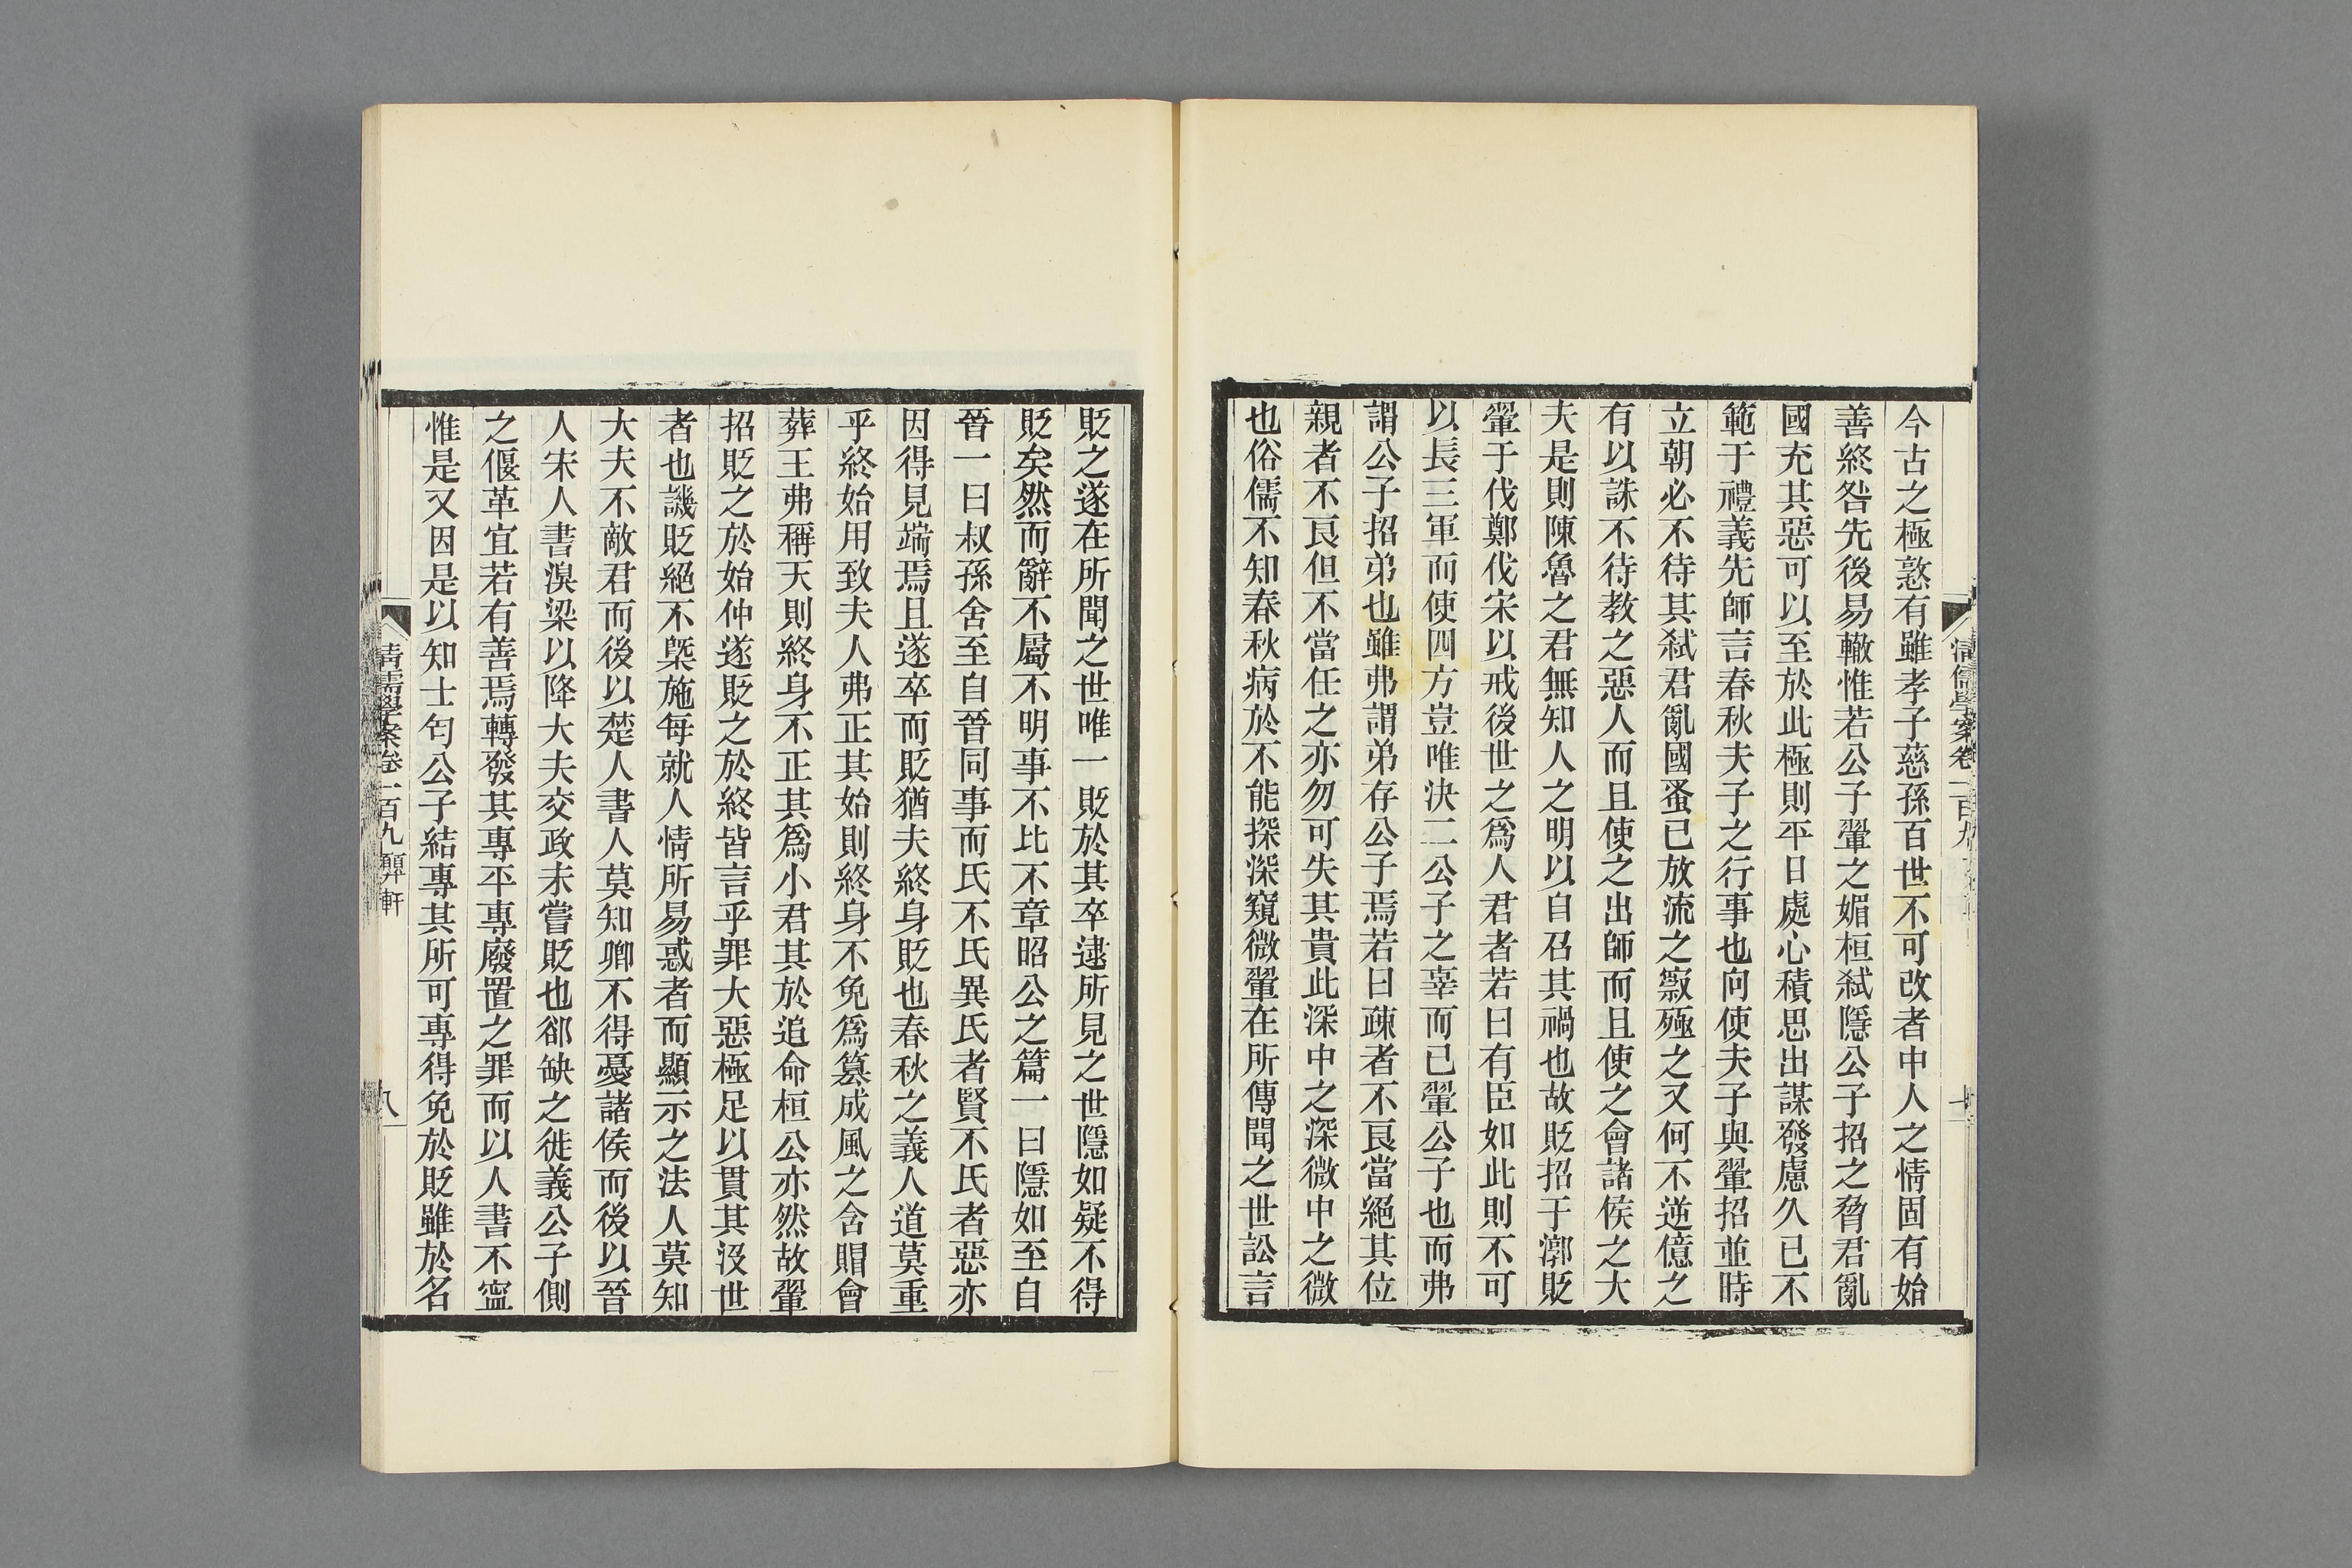 今古之極憝有雖孝子慈孫百世不可改者中人之情固有始
善終咎先後易轍惟若公子翬之媚桓弒隱公子招之脅君亂
國充其惡可以至於此極則平日處心積思出謀發慮久已不
範于禮義先師言春秋夫子之行事也向使夫子與翬招並時
立朝必不待其弒君亂國蚤已放流之竄殛之又何不逆億之
有以誅不待教之惡人而且使之出師而且使之會諸侯之大
夫是則陳魯之君無知人之明以自召其禍也故貶招于漷貶
翬于伐鄭伐宋以戒後世之爲人君者若曰有臣如此則不可
以長三軍而使四方豈唯決二公子之辜而已翬公子也而弗
謂公子招弟也雖弗謂弟存公子焉若曰疎者不良當絕其位
親者不良但不當任之亦勿可失其貴此深中之深微中之微
也俗儒不知春秋病於不能探深窺微翬在所傳聞之世訟言
貶之遂在所聞之世唯一貶於其卒逮所見之世隱如疑不得
貶矣然而辭不屬不明事不比不章昭公之篇一曰隱如至自
晉一曰叔孫舍至自晉同事而氏不氏異氏者賢不氏者惡亦
因得見端焉且遂卒而貶猶夫終身貶也春秋之義人道莫重
乎終始用致夫人弗正其始則終身不免爲篡成風之含賵會
葬王弗稱天則終身不正其爲小君其於追命桓公亦然故翬
招貶之於始仲遂貶之於終皆言乎罪大惡極足以貫其沒世
者也譏貶絕不槩施每就人情所易惑者而顯示之法人莫知
大夫不敵君而後以楚人書人莫知卿不得憂諸侯而後以晉
人宋人書湨梁以降大夫交政未嘗貶也郤缺之徙義公子側
之偃革宜若有善焉轉發其專平專廢置之罪而以人書不寧
惟是又因是以知士匄公子結專其所可專得免於貶雖於名
清儒學案卷一百九 顨軒
八